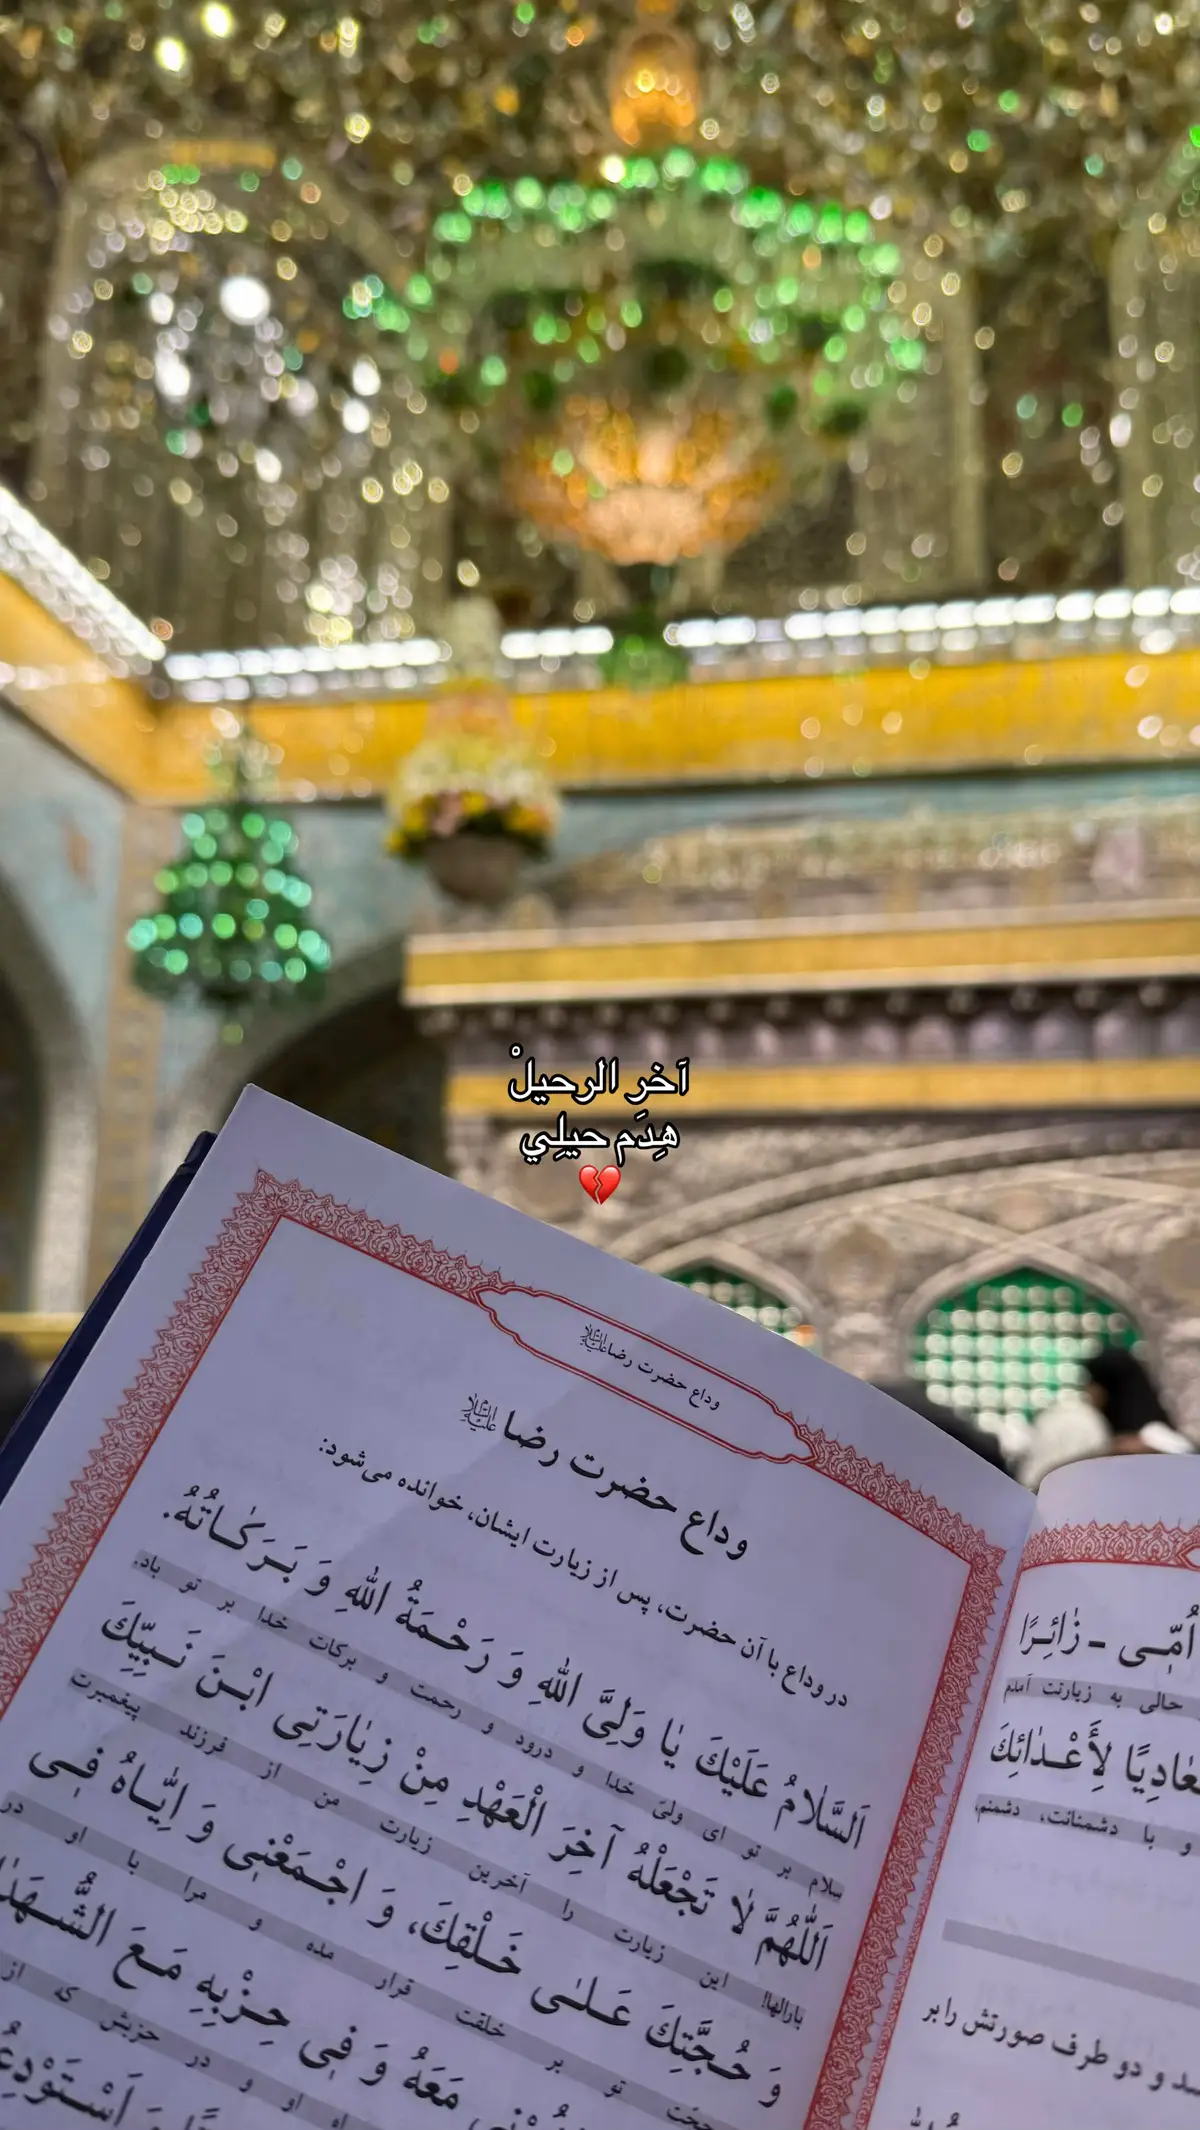 آخر الرحيلْ
هِدَم حيلِي
💔
وداع حضرت رضا علیه‌السلام
وداع حضرت رضا علیه‌السلام
در وداع با آن حضرت، پس از زیارت ایشان، خوانده می‌شود:
اَلسَّلٰامُ عَلَيْكَ يٰا وَلِىَّ اللّٰهِ وَ رَحْـمَةُ اللّٰهِ وَ بَـرَكٰـاتُهُ.
سلام بر تو ای ولیّ خدا و درود و رحمت و برکات خدا بر تو باد.
اَللّٰهُمَّ لٰا تَجْعَلْهُ آخِرَ الْعَهْدِ مِنْ زِيٰارَتِى ابْـنَ نَـبِيِّكَ
بارالها! این زیارت را آخرین زیارت من از فرزند پیغمبرت
وَ حُـجَّتِكَ عَـلـىٰ خَـلْقِكَ، وَ اجْـمَعْنِى وَ اِيّٰـاهُ فِـى
حجّت تو بر خلقت قرار مده و مرا با او در
مَعَهُ وَ فِى حِـزْبِهِ مَـعَ
او و در حزبش که از
وَ اَسْتَوْدِعُ
اُمِّـى - زٰائِـرًا
حالی به زیارتت آمدم
لِأَعْـدٰائِكَ
و با دشمنانت، دشمنم،
و دو طرف صورتش را بر